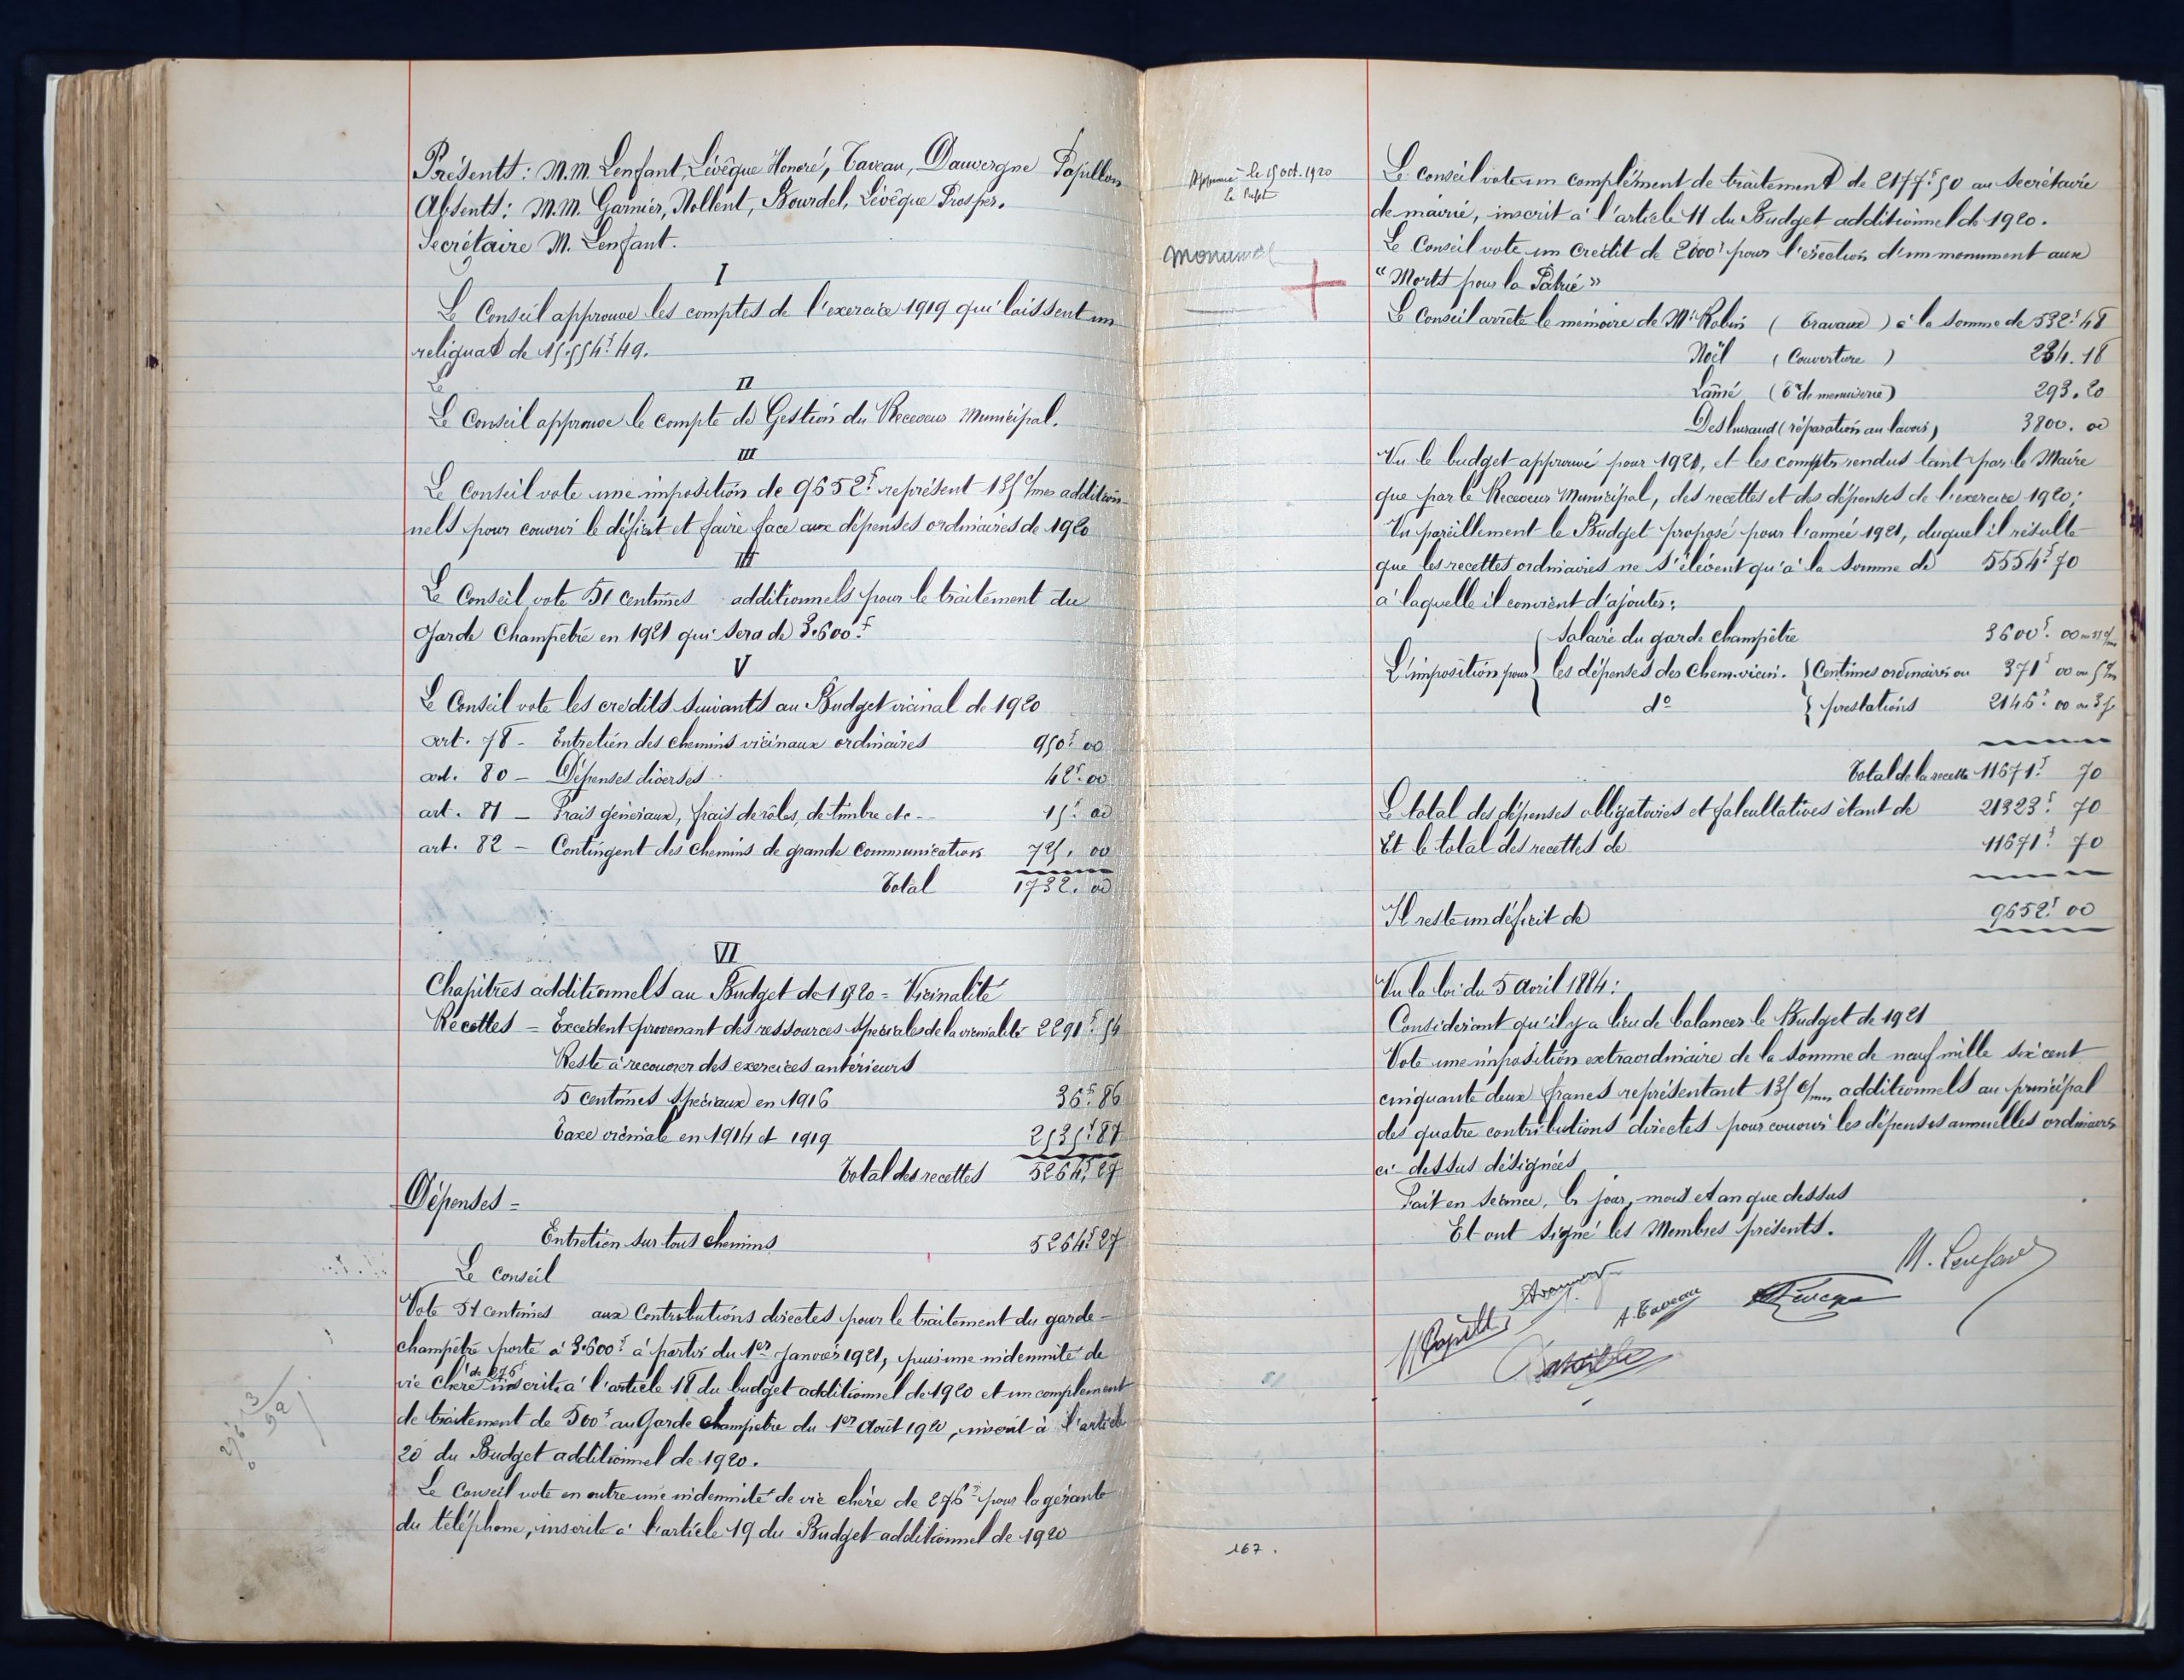 Présents : M.M. Lenfant, Lévêque Honoré, Taveau, Dauvergne Papillon
Absents : M.M. Garnier, Nollent, Bourdel, Lévêque Prosper.
Secrétaire M. Lenfant.
I
Le Conseil approuve les comptes de l'exercice 1919 qui laissent un
reliquat de 15.554f 49.
Le
II
Le Conseil approuve le compte de Gestion du Receveur Municipal.
III
Le Conseil vote une imposition de 9652f représent 135 c/mes addition-
nels pour couvrir le déficit et faire face aux dépenses ordinaires de 1920
IIII
Le Conseil vote 51 centimes additionnels pour le traitement du
Garde Champêtre en 1921 qui sera de 3.600f
V
Le Conseil vote les crédits suivants au Budget vicinal de 1920
art. 78 - Entretien des chemins vicinaux ordinaires 950f 00
art. 80 - Dépenses diverses 42f 00
art. 81 - Frais généraux, frais de rôles, de timbre etc - 15f 00
art. 82 - Contingent des chemins de grande communication 725, 00
Total 1732. 00
VI
Chapitres additionnels au Budget de 1920 = Vicinalité
Recettes = Excédent provenant des ressources spéciales de la vicinalité 2291f 54
Reste à recouvrer des exercices antérieurs
5 centimes spéciaux en 1916 36f 86
Taxe vicinale en 1914 et 1919 2535f 87
Total des recettes 5264f 27
Dépenses =
Entretien sur tous chemins 5264f 27
Le Conseil
Vote 51 centimes aux Contributions directes pour le traitement du garde-
champêtre porté à 3.600f à partir du 1er Janvier 1921, puis une indemnité de
de 276f
vie chère inscrite à l'article 18 du budget additionnel de 1920 et un complement
de traitement de 500f au Garde champetre du 1er Août 1920, inscrit à l'article
20 du Budget additionnel de 1920.
Le Conseil vote en outre une indemnité de vie chère de 276f pour la gérante
du téléphone, inscrite à l'article 19 du Budget additionnel de 1920
Approuvé - le 15 oct. 1920
Le Préfet
Monument
Le Conseil vote un complément de traitement de 2177f 50 au Secrétaire
de mairie, inscrit à l'article 11 du Budget additionnel de 1920.
Le Conseil vote un crédit de 2000f pour l'érection d'un monument aux
"Morts pour la Patrie"
Le Conseil arrête le mémoire de Mr Robin ( Travaux ) à la somme de 532f 48
Noël ( Couverture ) 234. 18
Lamé (Tx de menuiserie) 293. 20
(réparation au lavoir) 3800. 00
Vu le budget approuvé pour 1920, et les comptes rendus tant par le Maire
que par le Receveur Municipal, des recettes et des dépenses de l'exercice 1920;
Vu pareillement le Budget proposé pour l'année 1921, duquel il résulte
que les recettes ordinaires ne s'élèvent qu'à la somme de 5554f 70
à laquelle il convient d'ajouter :
Salaire du garde champêtre 3600f. 00 ou 51 c/mes
L'imposition pour les dépenses des Chem. vicin. Centimes ordinaires ou 371f 00 ou 5 c/mes
do prestations 2146f 00 ou 3 j.
Total de la recette 11671f 70
Le total des dépenses obligatoires et falcultatives étant de 21323f 70
Et le total des recettes de 11671f 70
Il reste un déficit de 9652f 00
Vu la loi du 5 Avril 1884 :
Considérant qu'il y a lieu de balancer le Budget de 1921
Vote une imposition extraordinaire de la somme de neuf mille six cent
cinquante deux francs représentant 135 c/mes additionnels au principal
des quatre contributions directes pour couvrir les dépenses annuelles ordinaires
ci-dessus désignées
Fait en séance, le jour, mois et an que dessus
Et ont signé les Membres présents.
M. Lenfant
A. Taveau
167.